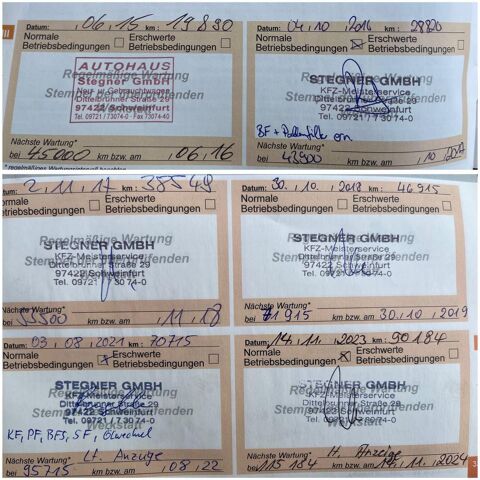 III
Datum: 06.15 km: 19890
Normale Betriebsbedingungen
Erschwerte Betriebsbedingungen
Regelmäßige Wartung
AUTOHAUS
Stegner GmbH
Neu- u. Gebrauchtwagen
Dittelbrunner Straße 29
97422 Schweinfurt
Tel. 09721/73074-0 · Fax 73074-40
Nächste Wartung*
bei 45000 km bzw. am 06.16
Datum: 04.10.2016 km: 28820
Normale Betriebsbedingungen
Erschwerte Betriebsbedingungen
Regelmäßige Wartung
STEGNER GMBH
KFZ-Meisterservice
Dittelbrunner Straße 29
97422 Schweinfurt
Tel. 09721 / 73074-0
BF + Pollenfilter ern
Nächste Wartung*
bei 43900 km bzw. am .10.2017
2.11.17 km: 38549
Normale Betriebsbedingungen
Erschwerte Betriebsbedingungen
Regelmäßige Wartung
STEGNER GMBH
KFZ-Meisterservice
Dittelbrunner Straße 29
97422 Schweinfurt
Tel. 09721 / 73074-0
Nächste Wartung*
bei 53500 km bzw. am .11.18
Datum: 30.10.2018 km: 46915
Normale Betriebsbedingungen
Erschwerte Betriebsbedingungen
Regelmäßige Wartung
STEGNER GMBH
KFZ-Meisterservice
Dittelbrunner Straße 29
97422 Schweinfurt
Tel. 09721 / 73074-0
Nächste Wartung*
bei 61915 km bzw. am 30.10.2019
Datum: 03.08.2021 km: 70715
Normale Betriebsbedingungen
Erschwerte Betriebsbedingungen
Regelmäßige Wartung
STEGNER GMBH
KFZ-Meisterservice
Dittelbrunner Straße 29
97422 Schweinfurt
Tel. 09721 / 73074-0
Werkstatt
KF, PF, BFS, SF, Ölwechsel
Nächste Wartung* Lt. Anzeige
bei 95715 km bzw. am .08.22
Datum: 14.11.2023 km: 90184
Normale Betriebsbedingungen
Erschwerte Betriebsbedingungen
Regelmäßige Wartung
STEGNER GMBH
KFZ-Meisterservice
Dittelbrunner Straße 29
97422 Schweinfurt
Tel. 09721 / 73074-0
Werkstatt
Nächste Wartung* lt. Anzeige
bei 115184 km bzw. am 14.11.2024